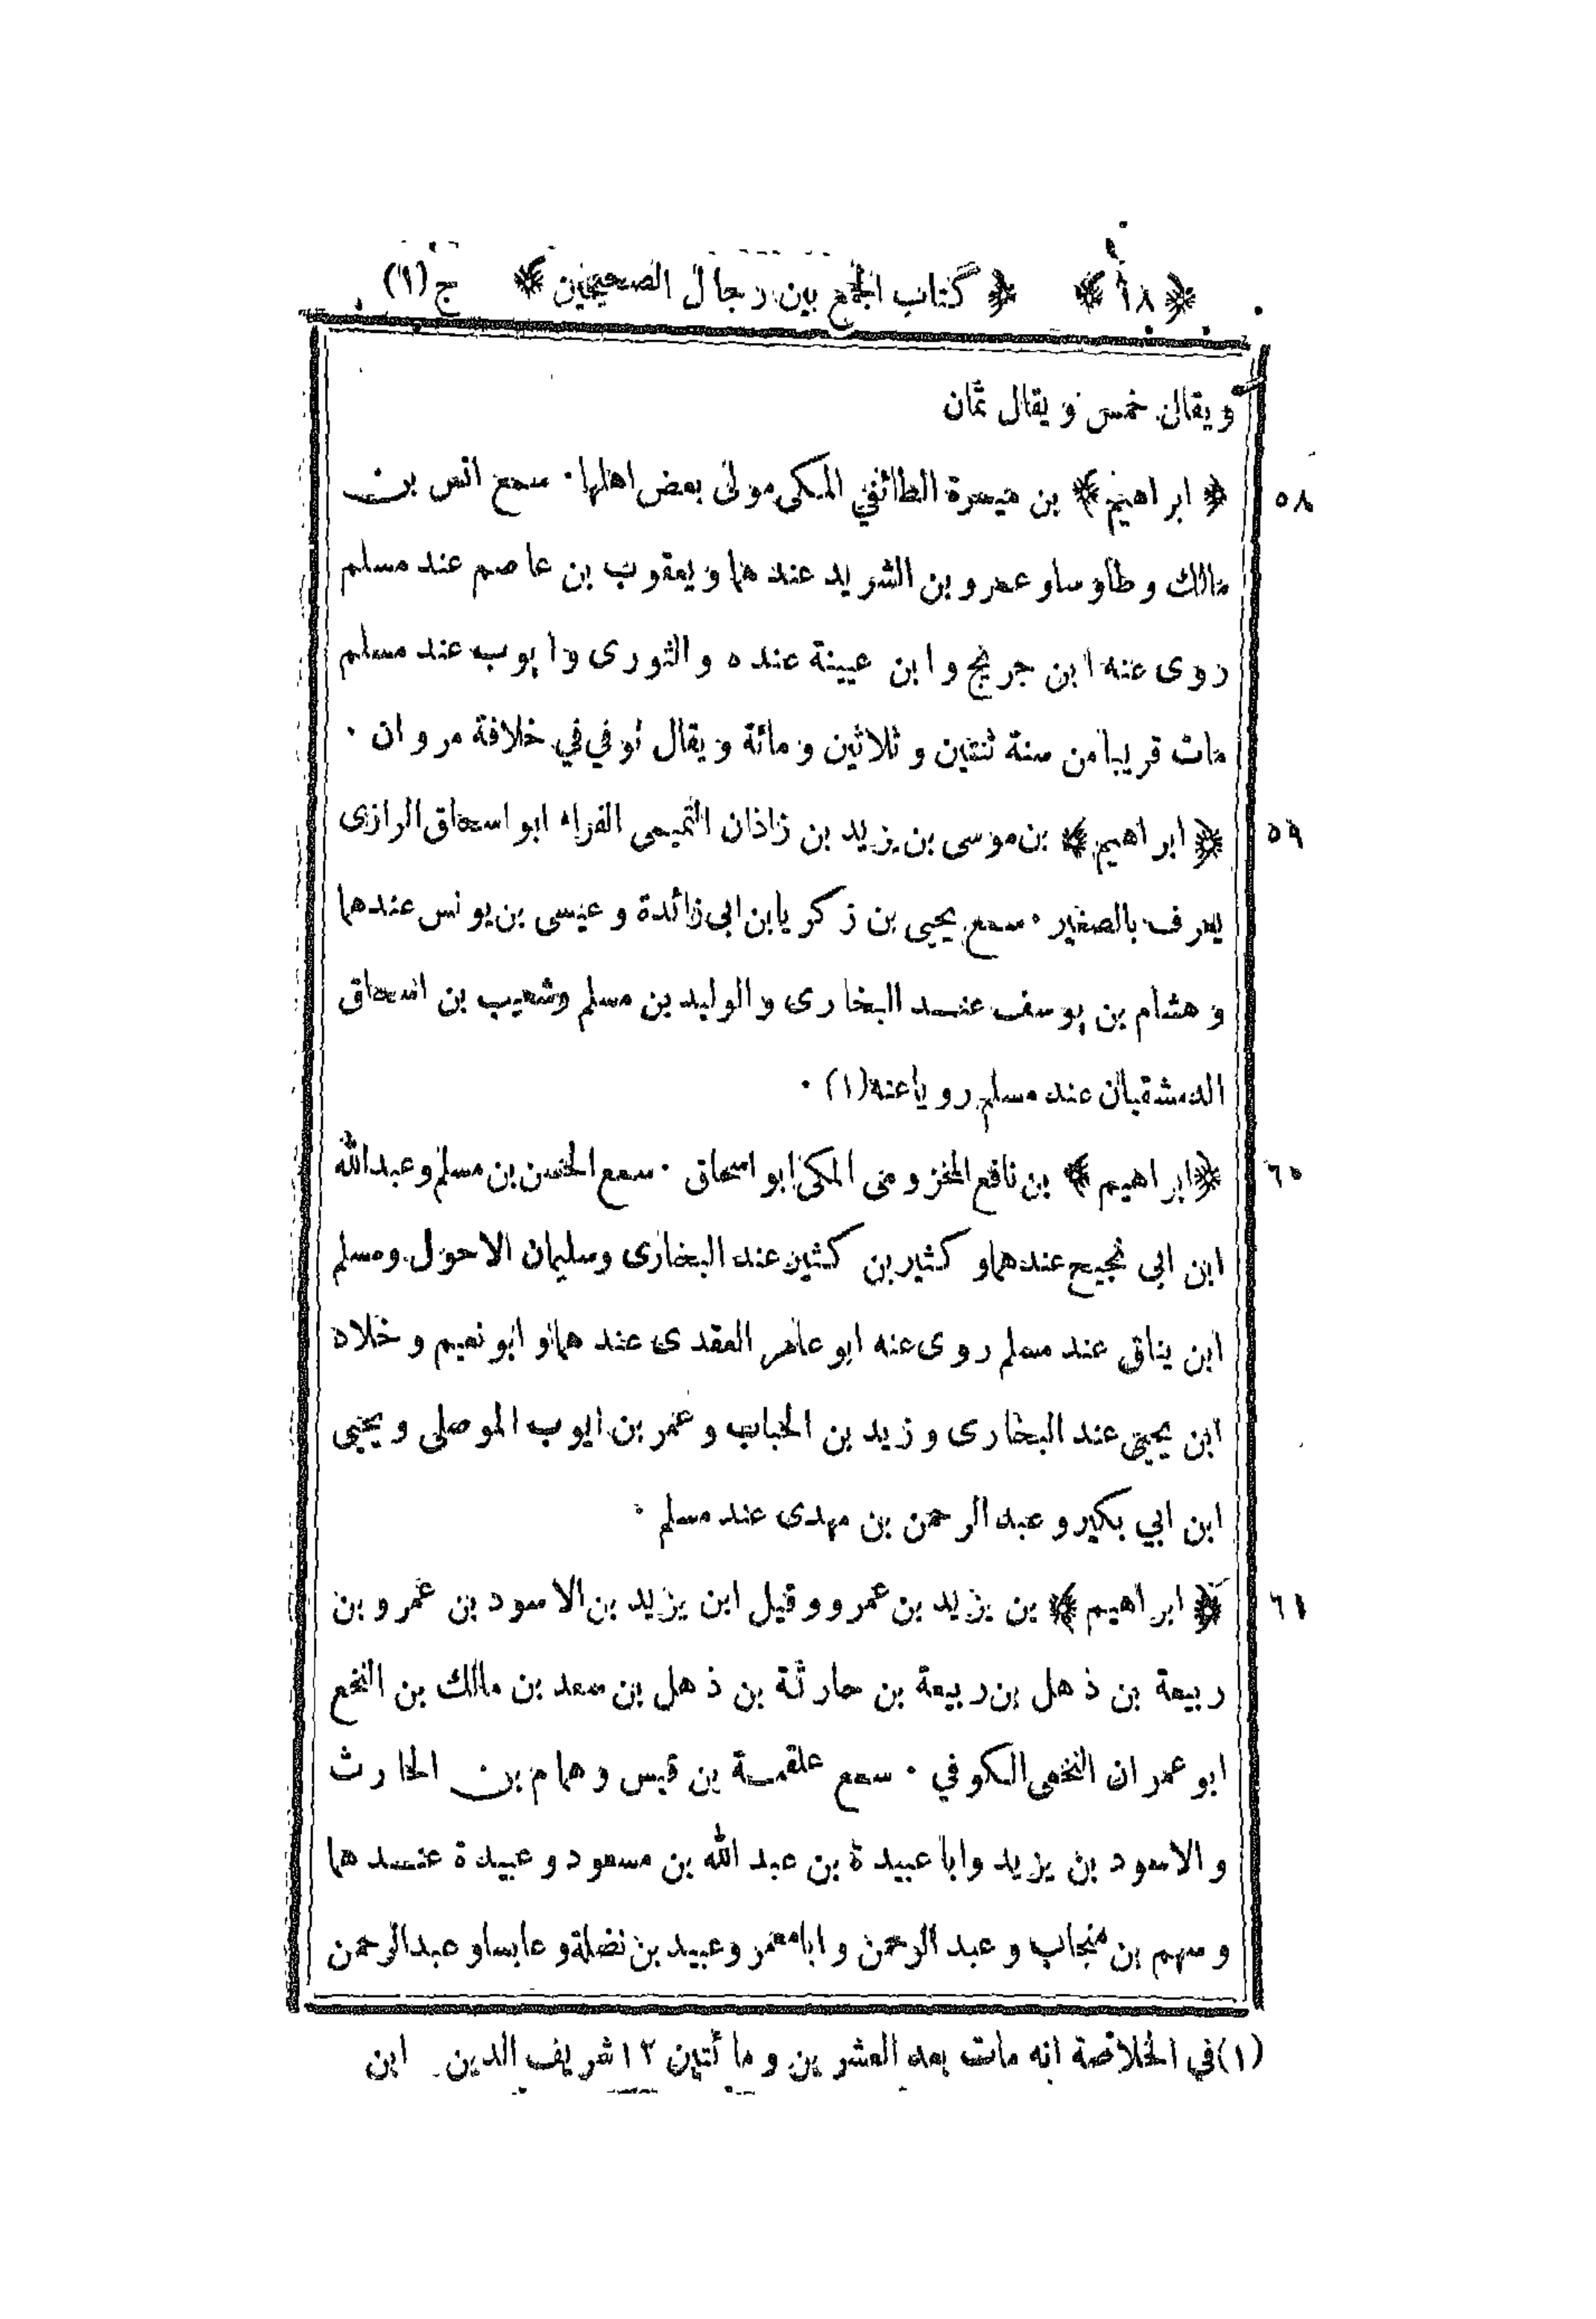 ﴿ ١٨ ﴾ ﴿ كتاب الجمع بين رجال الصحيحين ﴾ ج (١)
ويقال خمس ويقال ثمان
٥٨ ﴿ ابراهيم ﴾ بن ميسرة الطائفي المكى مولى بعض اهلها ٠ سمع انس بن
مالك وطاوسا وعمرو بن الشريد عندهما ويعقوب بن عاصم عند مسلم
روى عنه ابن جريج وابن عيينة عنده والثورى وايوب عند مسلم
مات قريبا من سنة ثنتين وثلاثين ومائة ويقال توفي في خلافة مروان ٠
٥٩ ﴿ ابراهيم ﴾ بن موسى بن يزيد بن زاذان التميمى الفراء ابو اسحاق الرازى
يعرف بالصغير ٠ سمع يحيى بن زكريا بن ابى زائدة وعيسى بن يونس عندهما
وهشام بن يوسف عند البخارى والوليد بن مسلم وشعيب بن اسحاق
الدمشقيان عند مسلم رويا عنه (١) ٠
٦٠ ﴿ ابراهيم ﴾ بن نافع المخزومى المكى ابو اسحاق ٠ سمع الحسن بن مسلم وعبد الله
ابن ابى نجيح عندهما وكثير بن كثير عند البخارى وسليمان الاحول ومسلم
ابن يناق عند مسلم روى عنه ابو عامر العقدى عندهما وابو نعيم وخلاد
ابن يحيى عند البخارى وزيد بن الحباب وعمر بن ايوب الموصلى ويحيى
ابن ابي بكير وعبد الرحمن بن مهدى عند مسلم ٠
٦١ ﴿ ابراهيم ﴾ بن يزيد بن عمرو وقيل ابن يزيد بن الاسود بن عمرو بن
ربيعة بن ذهل بن ربيعة بن حارثة بن ذهل بن سعد بن مالك بن النخع
ابو عمران النخعى الكوفي ٠ سمع علقمة بن قيس وهمام بن الحارث
والاسود بن يزيد وابا عبيدة بن عبد الله بن مسعود وعبيدة عندهما
وسهم بن منجاب وعبد الرحمن وابا معمر وعبيد بن نضلة وعابسا وعبد الرحمن
(١) في الخلاصة انه مات بعد العشرين ومائتين ١٢ شريف الدين ابن